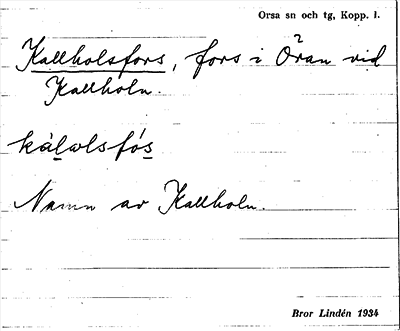 Orsa sn och tg, Kopp. l.
Kallholsfors, fors i Oran vid
Kallholn.
kàlwlsfós
Namn av Kallholn.
Bror Lindén 1934